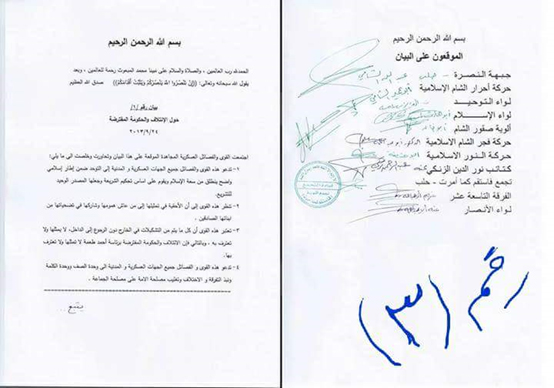 بسم الله الرحمن الرحيم
الحمدلله رب العالمين ، والصلاة والسلام على نبينا محمد المبعوث رحمة للعالمين ، وبعد
يقول الله سبحانه وتعالى: ((إن تنصروا الله ينصركم ويثبت أقدامكم)) صدق الله العظيم
بيان رقم /١/
حول الائتلاف والحكومة المفترضة
٢٠١٣/٩/٢٤
اجتمعت القوى والفصائل العسكرية المجاهدة الموقعة على هذا البيان وتحاورت وخلصت الى ما يأتي:
١- تدعو هذه القوى والفصائل جميع الجهات العسكرية و المدنية إلى التوحد ضمن إطار إسلامي
واضح ينطلق من سعة الإسلام ويقوم على اساس تحكيم الشريعة وجعلها المصدر الوحيد
للتشريع .
٢- تنظر هذه القوى إلى أن الأحقية في تمثيلها إلى من عاش همومها وشاركها في تضحياتها من
ابنائها الصادقين .
٣- تعتبر هذه القوى أن كل ما يتم من التشكيلات في الخارج دون الرجوع إلى الداخل، لا يمثلها ولا
تعترف به ، وبالتالي فإن الائتلاف والحكومة المفترضة برئاسة أحمد طعمة لا تمثلها ولا تعترف
بها.
٤- تدعو هذه القوى و الفصائل جميع الجهات العسكرية و المدنية الى وحدة الصف ووحدة الكلمة
ونبذ التفرقة و الاختلاف وتغليب مصلحة الامة على مصلحة الجماعة .
يتبع...
بسم الله الرحمن الرحيم
الموقعون على البيان
جبهة النصرة
حركة أحرار الشام الإسلامية
لواء التوحيد
لواء الإسلام
ألوية صقور الشام
حركة فجر الشام الاسلامية
حركة النور الاسلامية
كتائب نور الدين الزنكي
تجمع فاستقم كما أمرت - حلب
الفرقة التاسعة عشر
لواء الأنصار
رقم (٣)